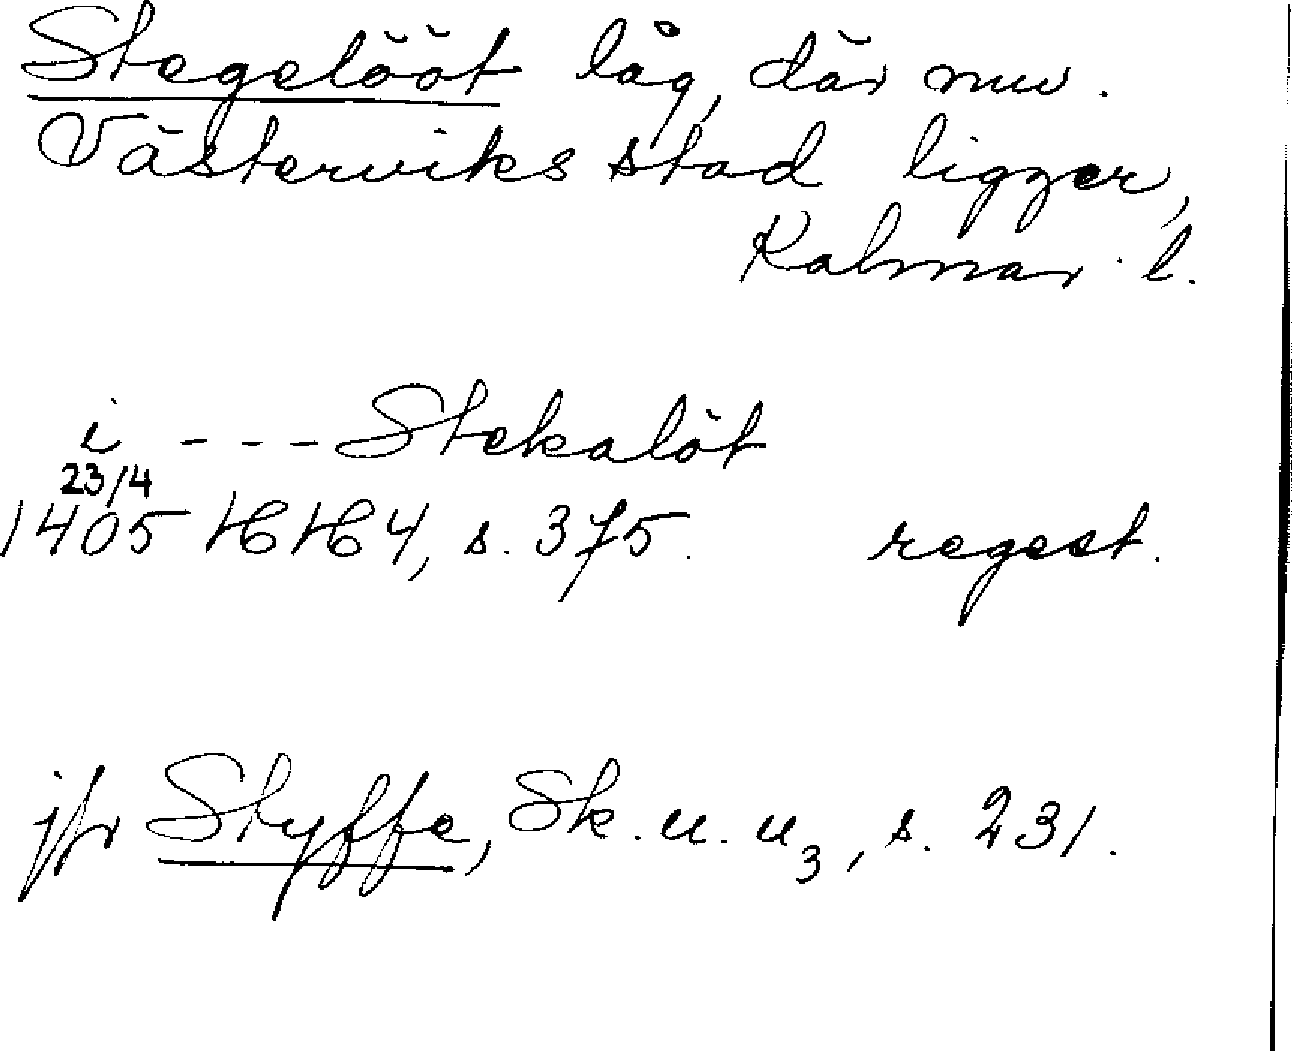 Stegelööt låg, där nuv.
Västerviks stad ligger,
Kalmar l.
i - - - Stekalöt
23/4
1405 HH 4, s. 375. regest.
jfr Styffe, Sk. u. u3, s. 231.